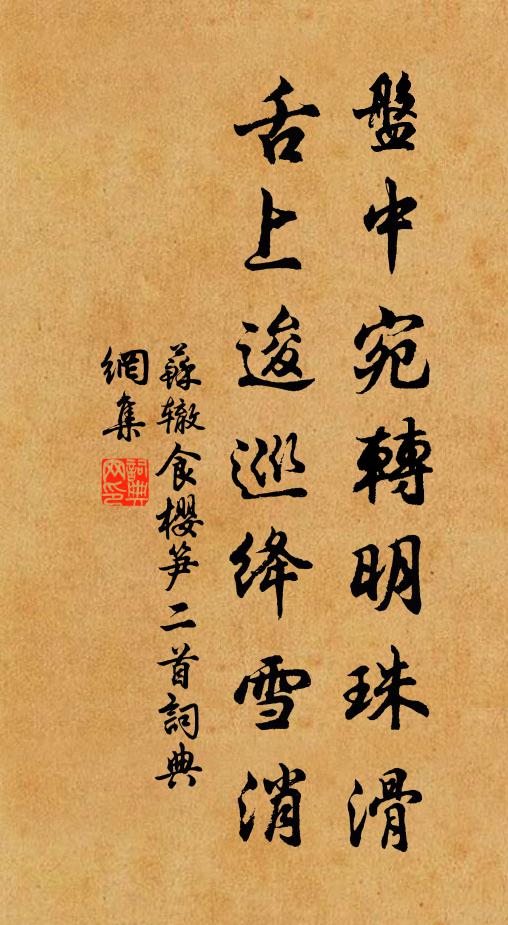 盤中宛轉明珠滑
舌上逡巡絳雪消
蘇辙食櫻笋二首詞典
網集
詞典
网印